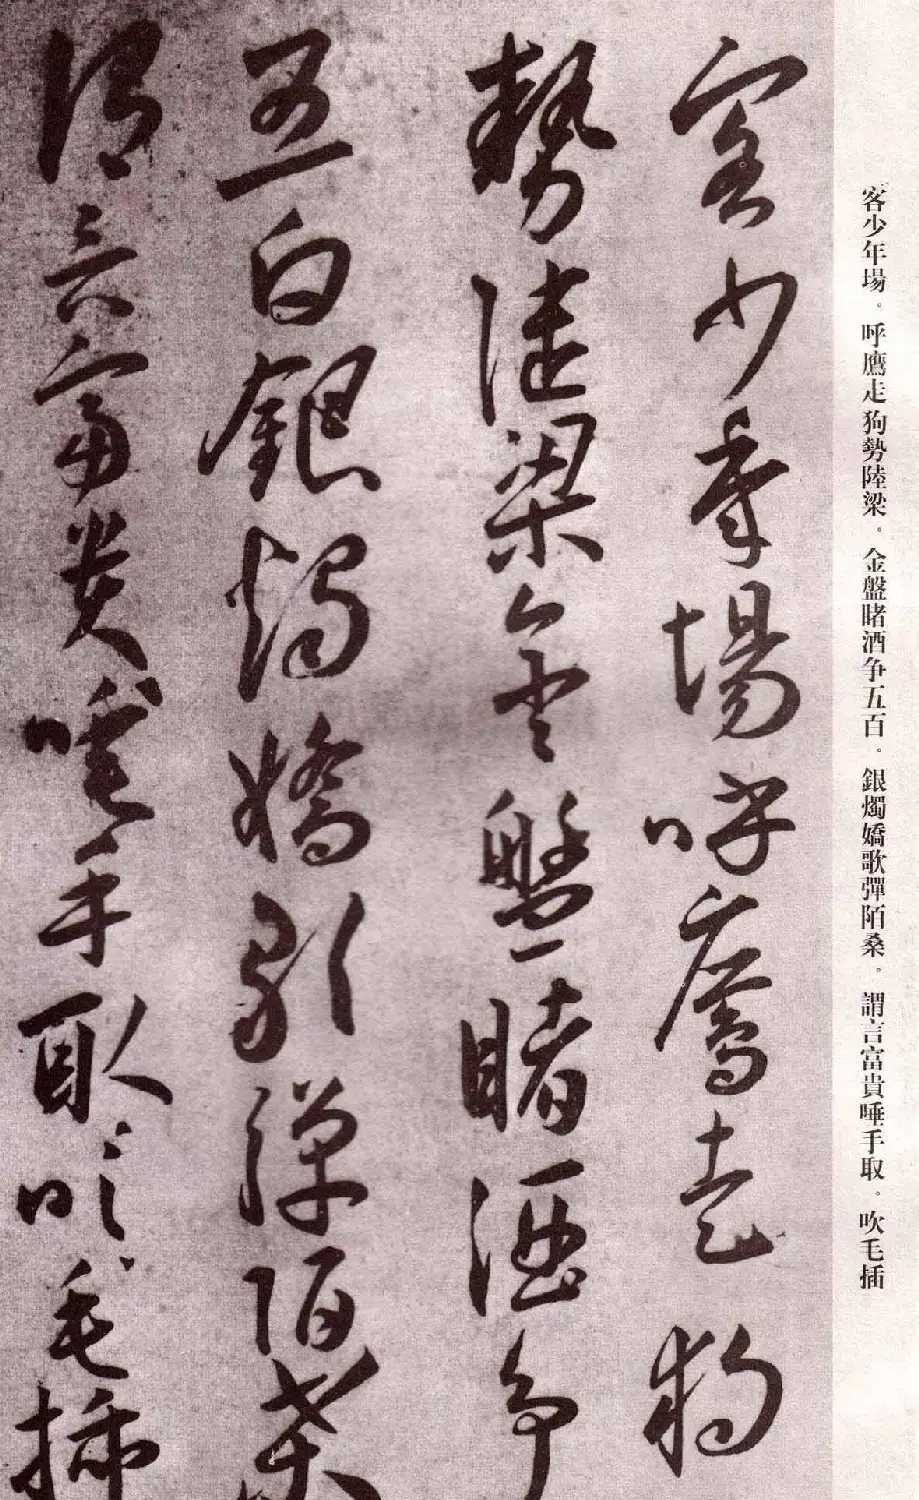 客少年場。呼鷹走狗勢陸梁。金盤睹酒争五百。銀燭嬌歌彈陌桑。謂言富貴唾手取。吹毛插
客少年場呼鷹走狗
勢陸梁金盤睹酒争
五白銀燭嬌歌彈陌桑
謂言富貴唾手取吹毛插